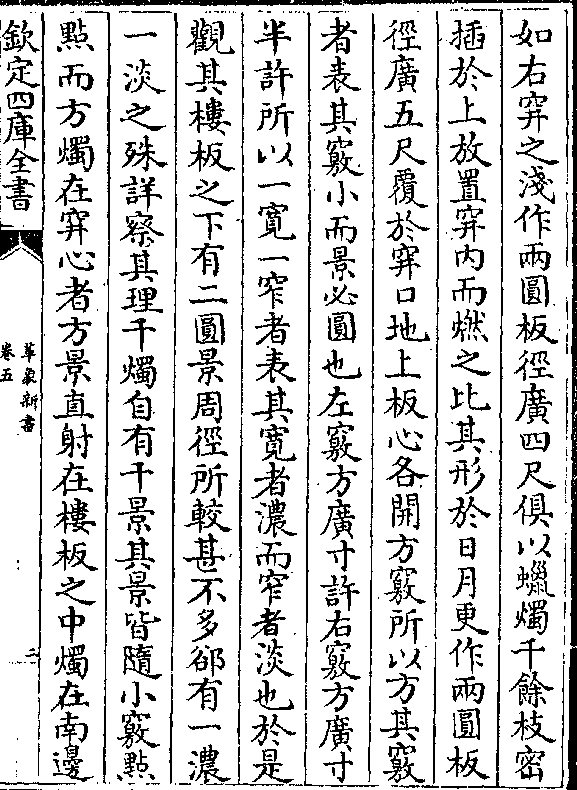 如右穽之淺作兩圓板徑廣四尺俱以蠟燭千餘枝密
插於上放置穽内而燃之比其形於日月更作兩圓板
徑廣五尺覆於穽口地上板心各開方竅所以方其竅
者表其竅小而景必圓也左竅方廣寸許右竅方廣寸
半許所以一寛一窄者表其寛者濃而窄者淡也於是
觀其樓板之下有二圓景周徑所較甚不多郤有一濃
一淡之殊詳察其理千燭自有千景其景皆隨小竅點
點而方燭在穽心者方景直射在樓板之中燭在南邊
欽定四庫全書
革象新書
卷五
二